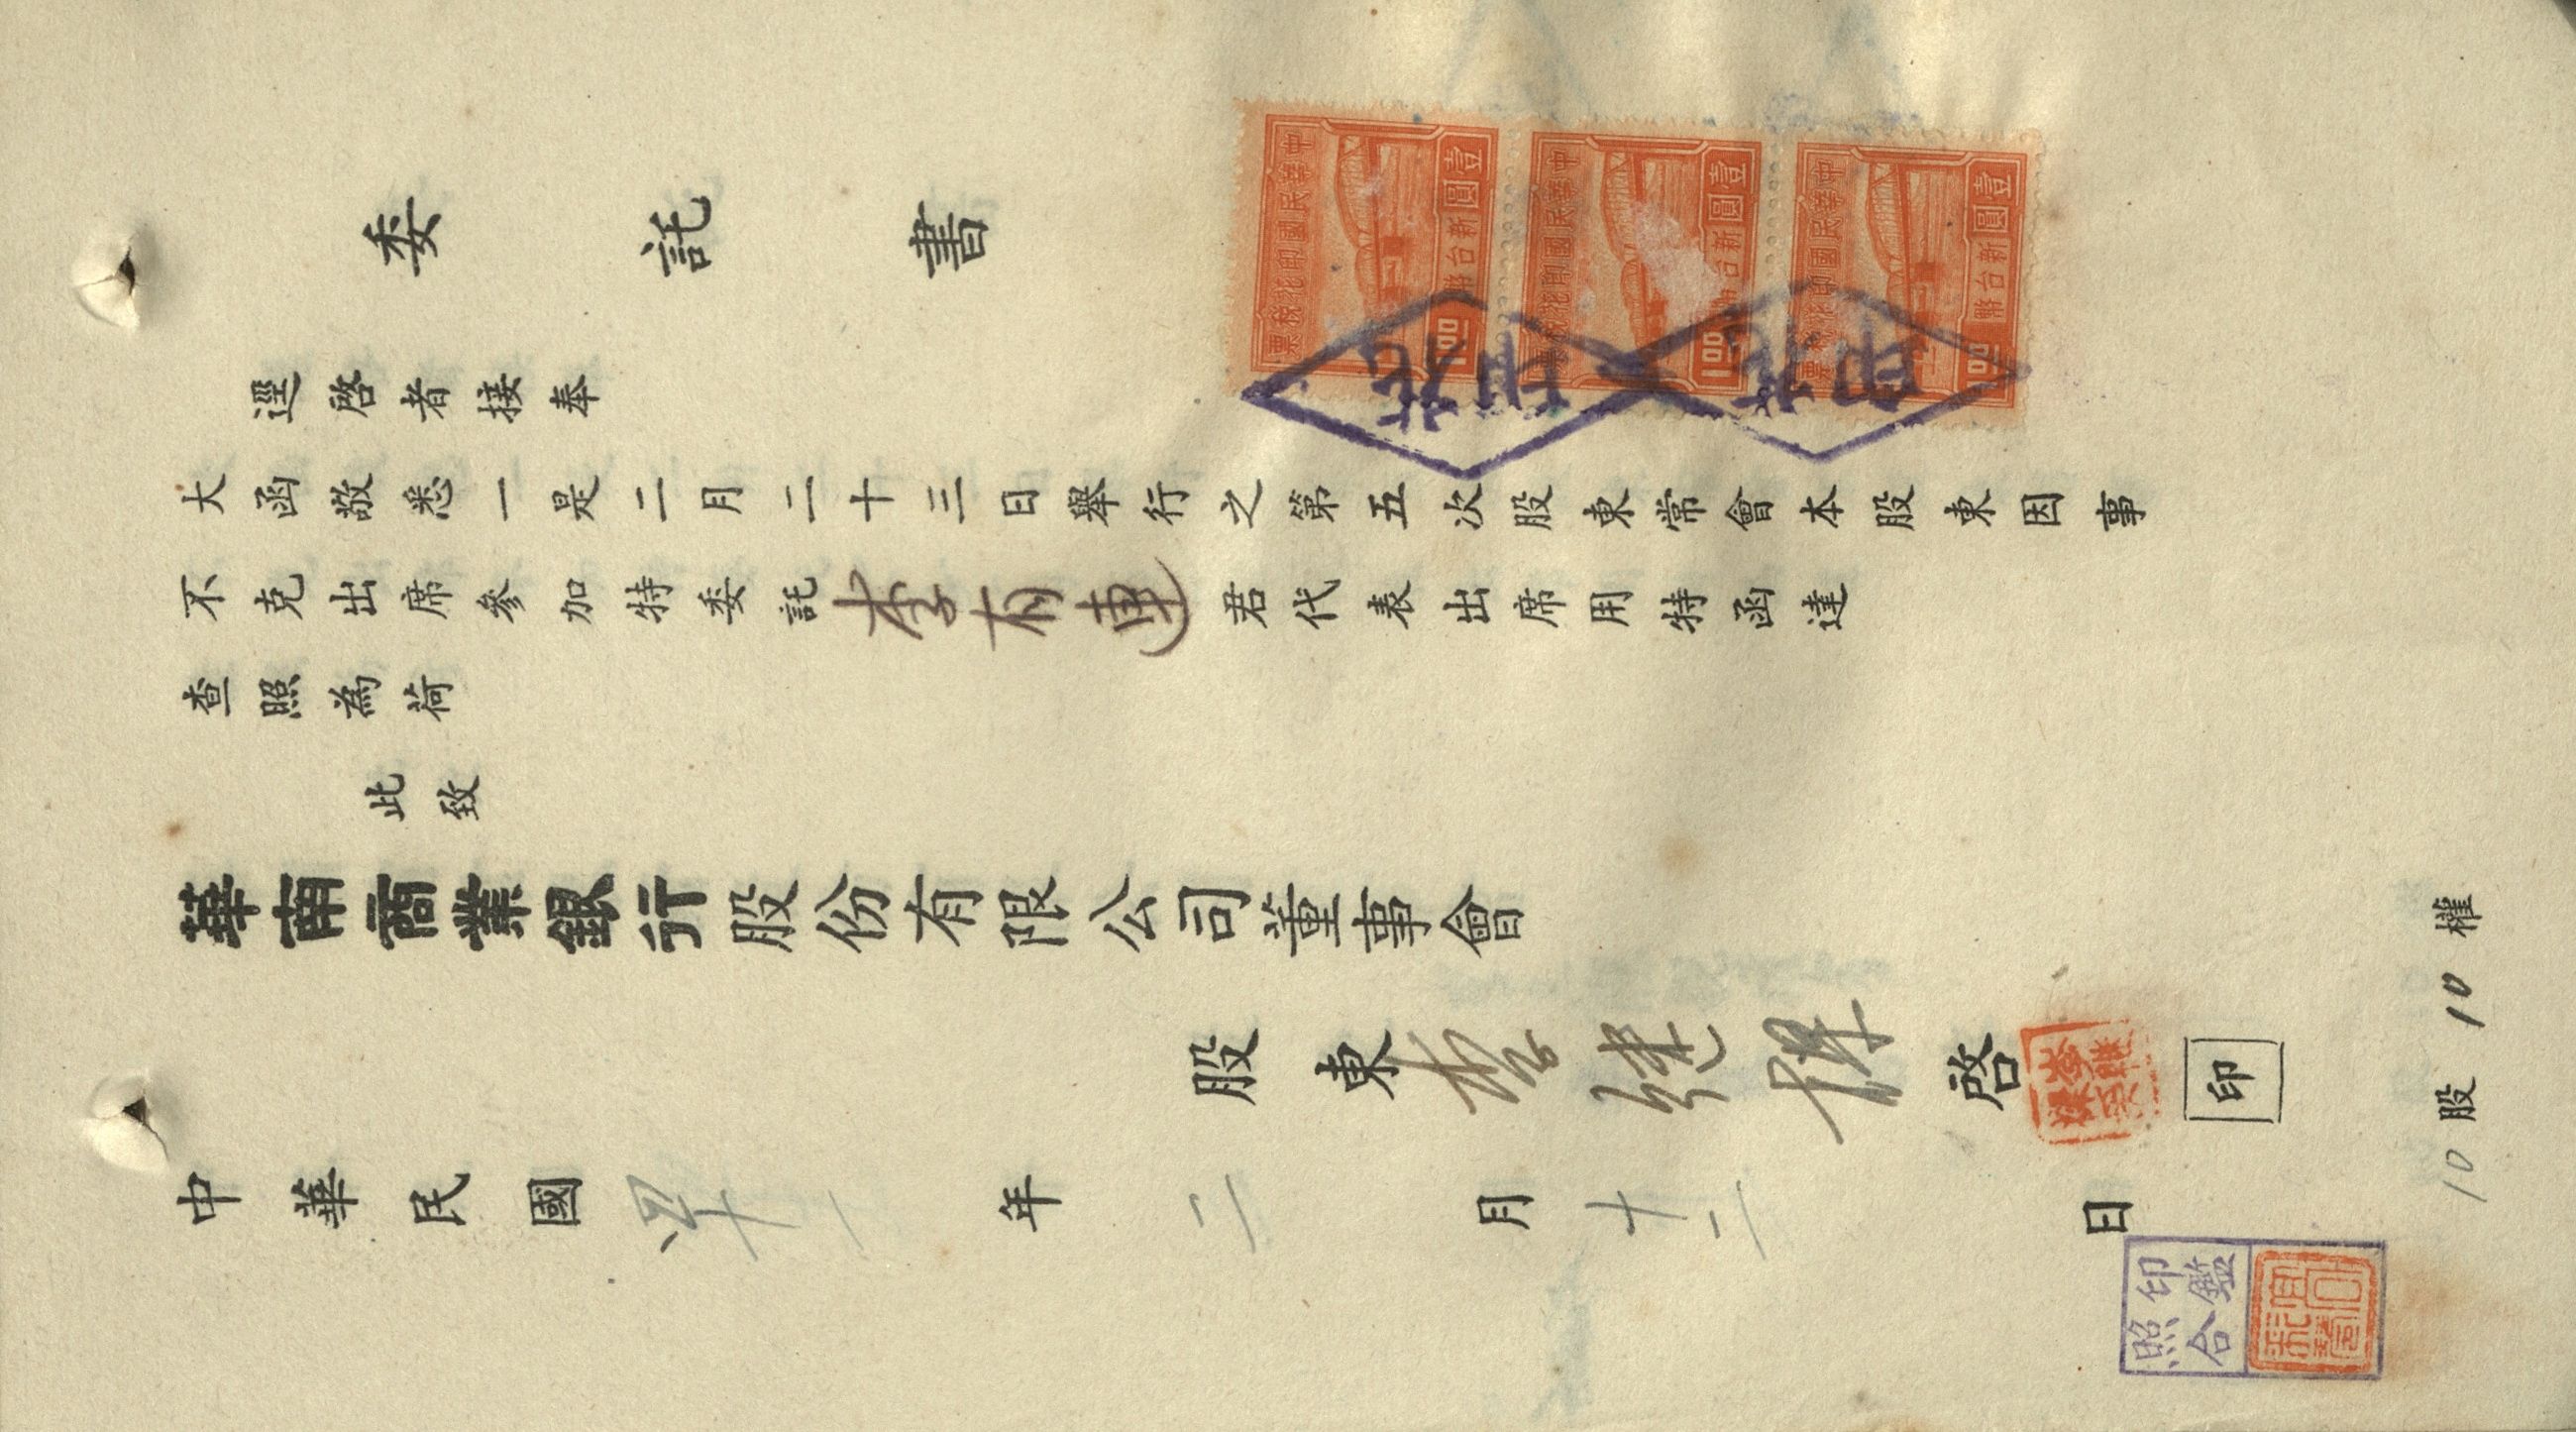 委託書
逕啓者接奉
大函敬悉一是二月二十三日舉行之第五次股東常會本股東因事
不克出席參加特委託李有連君代表出席用特函達
查照為荷
此致
華南商業銀行股份有限公司董事會
股東李 啓
印
中華民國四十一年二月十二日
10股10權
印鑑
照合
中華民國印花稅票
壹圓
新台幣
1.00
中華民國印花稅票
壹圓
新台幣
1.00
中華民國印花稅票
壹圓
新台幣
1.00